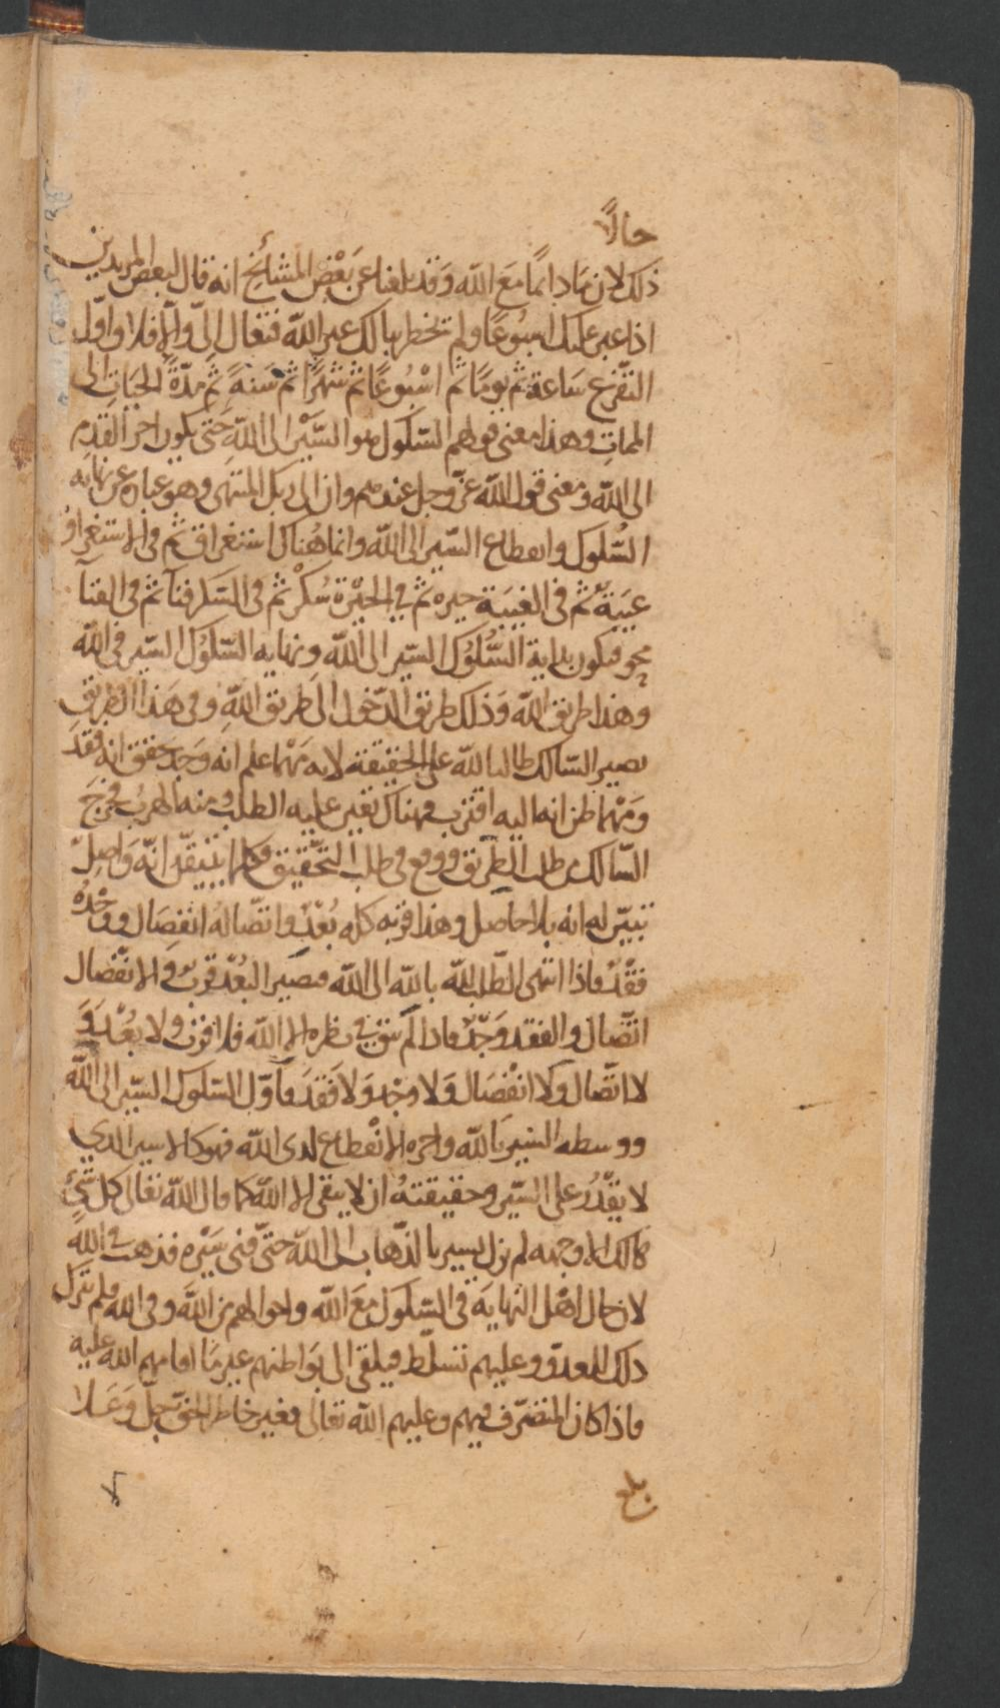 حالًا
ذلك لان مادائمًا مَعَ الله وَقَد بلغنا عن بَعْضِ المشائخ انه قال لبعض المريدين
اذا عبر عليك اسبُوعًا ولم تخطر ببالك غير الله فتعال اِليّ واِلّا فلا واوّل
التفرّغ سَاعة ثم يومًا ثم اسْبُوعًا ثم شهرًا ثم سَنَةً ثم مدّة الحيَاتِ الى
المماتِ وهذا معنى قولهم السّلوك هو السَّيْر الى اللهِ حتى يكون اخر القدم
الى الله ومعنى قول الله عزّ وجل عندهم وان الى ربك المنتهى وهو عباره عن نهايه
السُلوك وانقطاع السّير الى الله وانما هُناك استغراق ثم في الاستغراق
غيبَة ثم في الغيبَة حيره ثم في الحيْرة سُكْر ثم في السّكر فنآ ثم في الفنآ
محو فيكون بداية السُّلُوك السّير الى الله ونهايه السّلوك السّير في الله
وهذا طريق الله وَذلك طريق الدّخول الى طريق اللهِ وفي هَذا الطريق
يصير السّالك طالبا لله على الحقيقة لانه مَهْما علم انه وَجد تحقق انه فقد
وَمَهْما ظن انه اليه اقترب فهناك تعين عليه الطلب ومنه الهرب فخرجَ
السّالك من طلب الطريق ووقع في طلب التّحقيق وكلما يتيقّن انّه وَاصِلٌ
تبيّن له انه بلا حاصل وهذا قربه كله بُعْدٌ واتّصاله انفصَال ووجْدُه
فقْدٌ فاذا انتهى الطّلب لله بالله الى الله فيصير البُعْد قرب والانفصال
اتّصال والفقد وَجْدٌ فاذا لم يبق في نظره الا الله فلا قرب ولا بعْدَ وَ
لا اتّصال وَلا انْفصَال وَلا وجْد وَلا فقْدَ فاوّل السّلوك السّير الى الله
ووسطه السّير بالله واخره الانْقطاع لدى الله فهو كالاسير الذي
لا يقْدرُ على السّير وحقيقتهُ ان لا يبقى الا الله كما قال الله تعالى كل شَيْءٍ
هالك الا وجهه لم يزل يسير بالذّهاب الى الله حتّى فنى سَيْره فذهب في اللهِ
لان حال اهْل النّهايَة في السّلوك مَعَ الله واحوالهم من الله وفي الله ولم يترك
ذلك للعدوّ عليهم تسلّط فيلقى الى بَوَاطنهم غير مَا اقامهم الله عليه
فاذا كان المتصرّف فيهم وعليهم الله تعالى فغير خاطر الحق جلّ وَعَلا
بلغ
لا